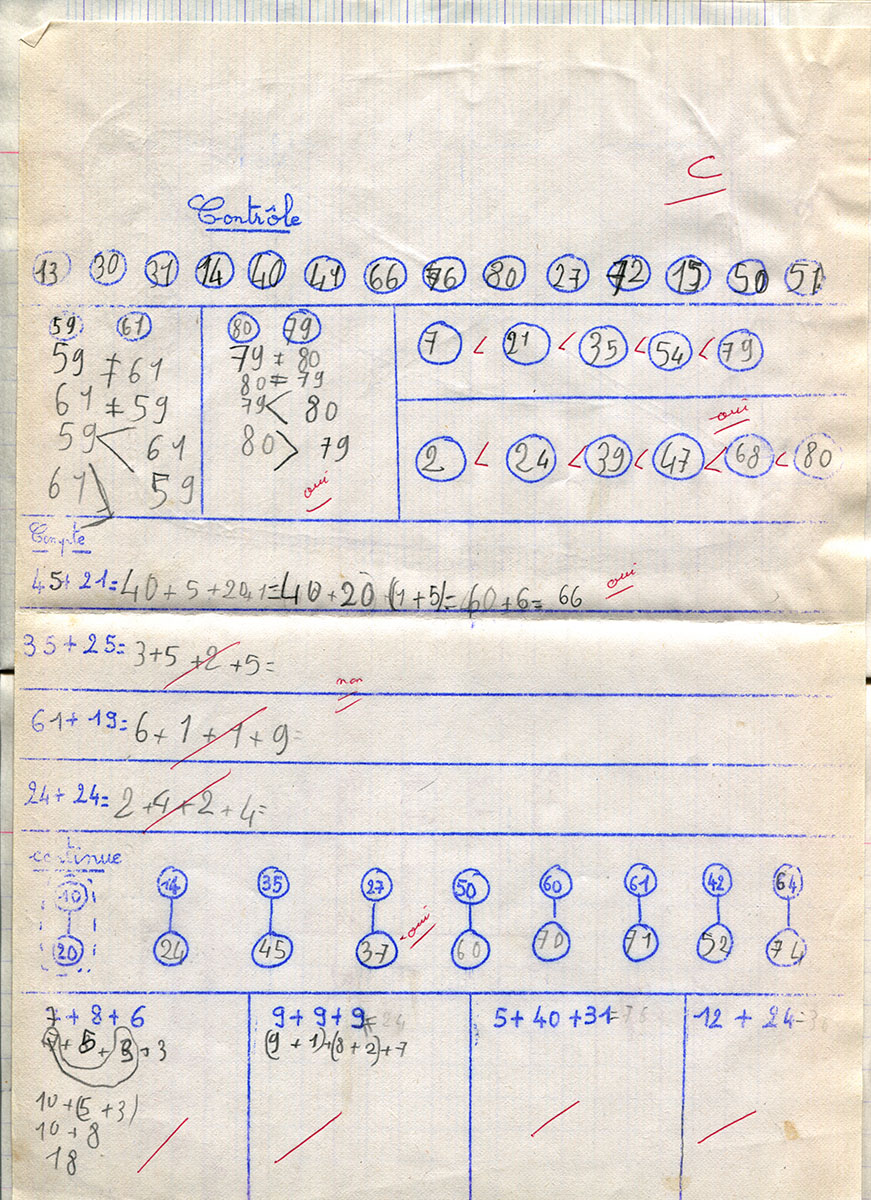 C
Contrôle
13 30 31 14 40 41 66 76 80 27 72 15 50 51
59 61
59 ≠ 61
61 ≠ 59
59 < 61
61 > 59
80 79
79 ≠ 80
80 ≠ 79
79 < 80
80 > 79
oui
7 < 21 < 35 < 54 < 79
oui
2 < 24 < 39 < 47 < 68 < 80
Compte
45+21=40+5+20+1=40+20 (1+5)=60+6= 66 oui
35+25= 3+5+2+5=
non
61+19= 6+1+1+9=
24+24= 2+4+2+4=
continue
10 14 35 27 50 60 61 42 64
20 24 45 37 60 70 71 52 74
oui
7+8+6
10+(5+3)
10+8
18
9+9+9=24
(9+1)+(8+2)+7
5+40+31=76
12+24=